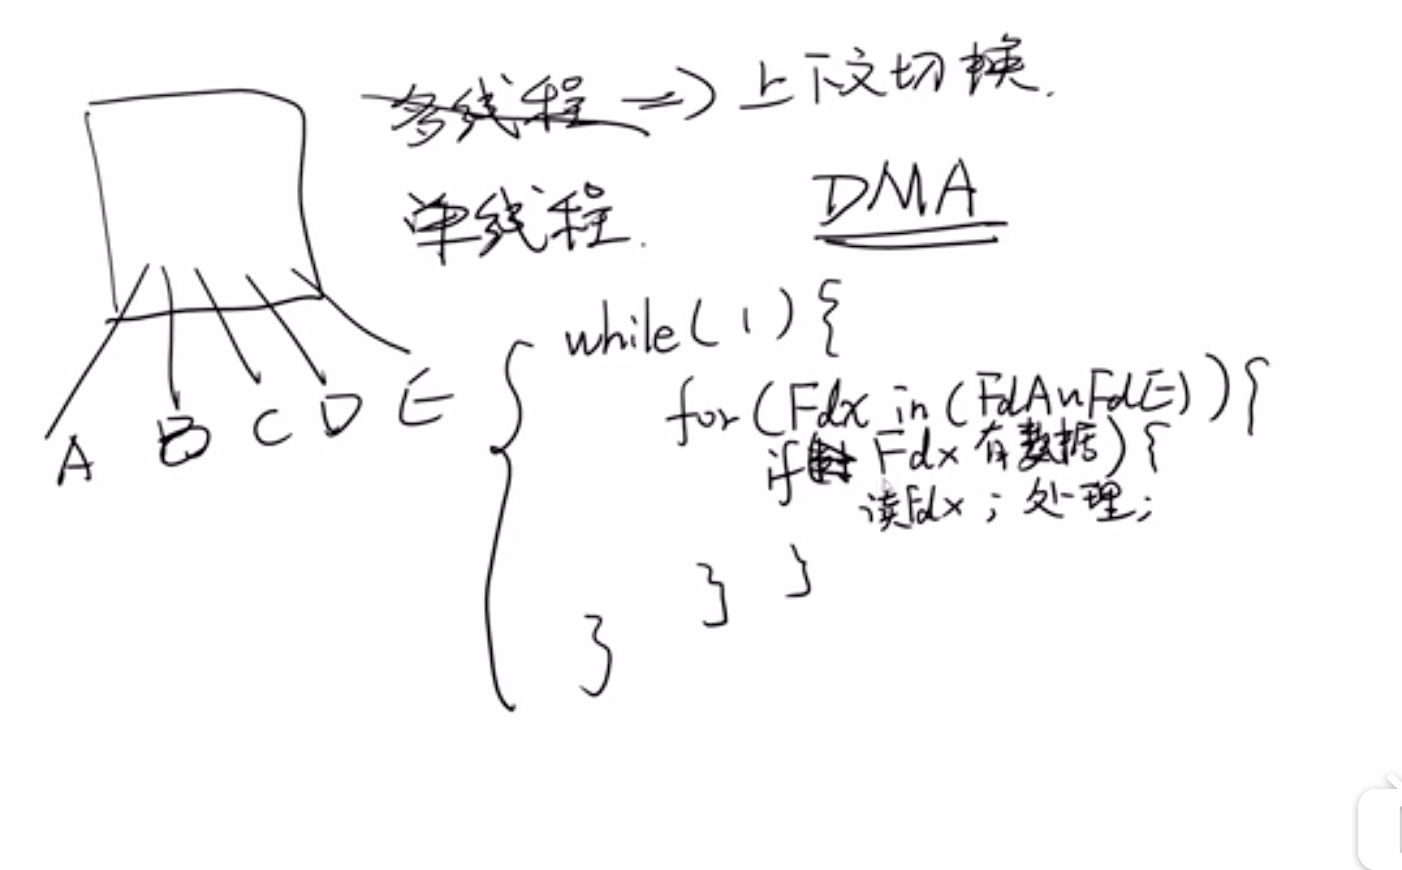 多线程 => 上下文切换.
单线程.
DMA
while(1){
for(Fdx in (FdA~FdE)){
if Fdx有数据){
读Fdx; 处理;
}
}
}
A B C D E